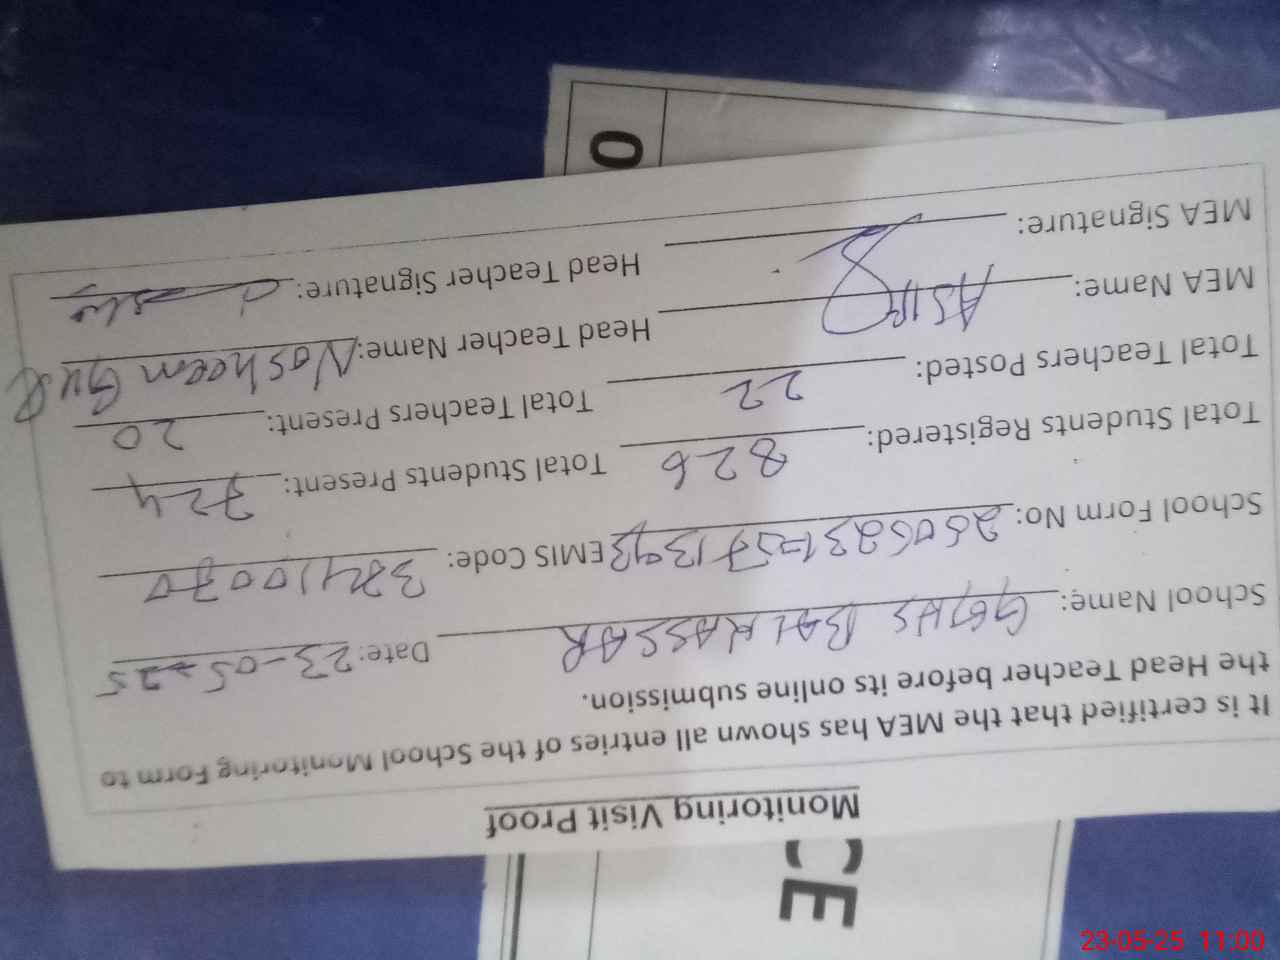 CE
Monitoring Visit Proof
It is certified that the MEA has shown all entries of the School Monitoring Form to
the Head Teacher before its online submission.
School Name: GGHS BALKASSAR Date: 23-05-25
School Form No: EMIS Code:
Total Students Registered: 826 Total Students Present: 724
Total Teachers Posted: 22 Total Teachers Present: 20
MEA Name: ASIF Head Teacher Name: Nosheen Gul
MEA Signature: Head Teacher Signature:
0
23-05-25 11:00